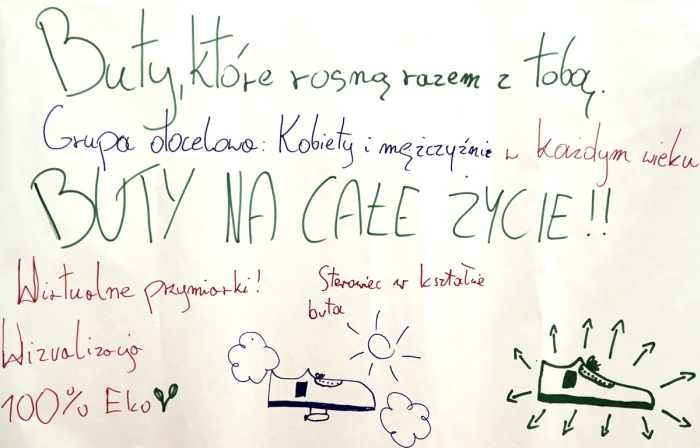 Buty, które rosną razem z tobą.
Grupa docelowa: Kobiety i mężczyźnie w każdym wieku
BUTY NA CAŁE ŻYCIE!!
Wirtualne przymiarki!
Sterowiec w kształcie
buta
Wizualizacja
100% Eko